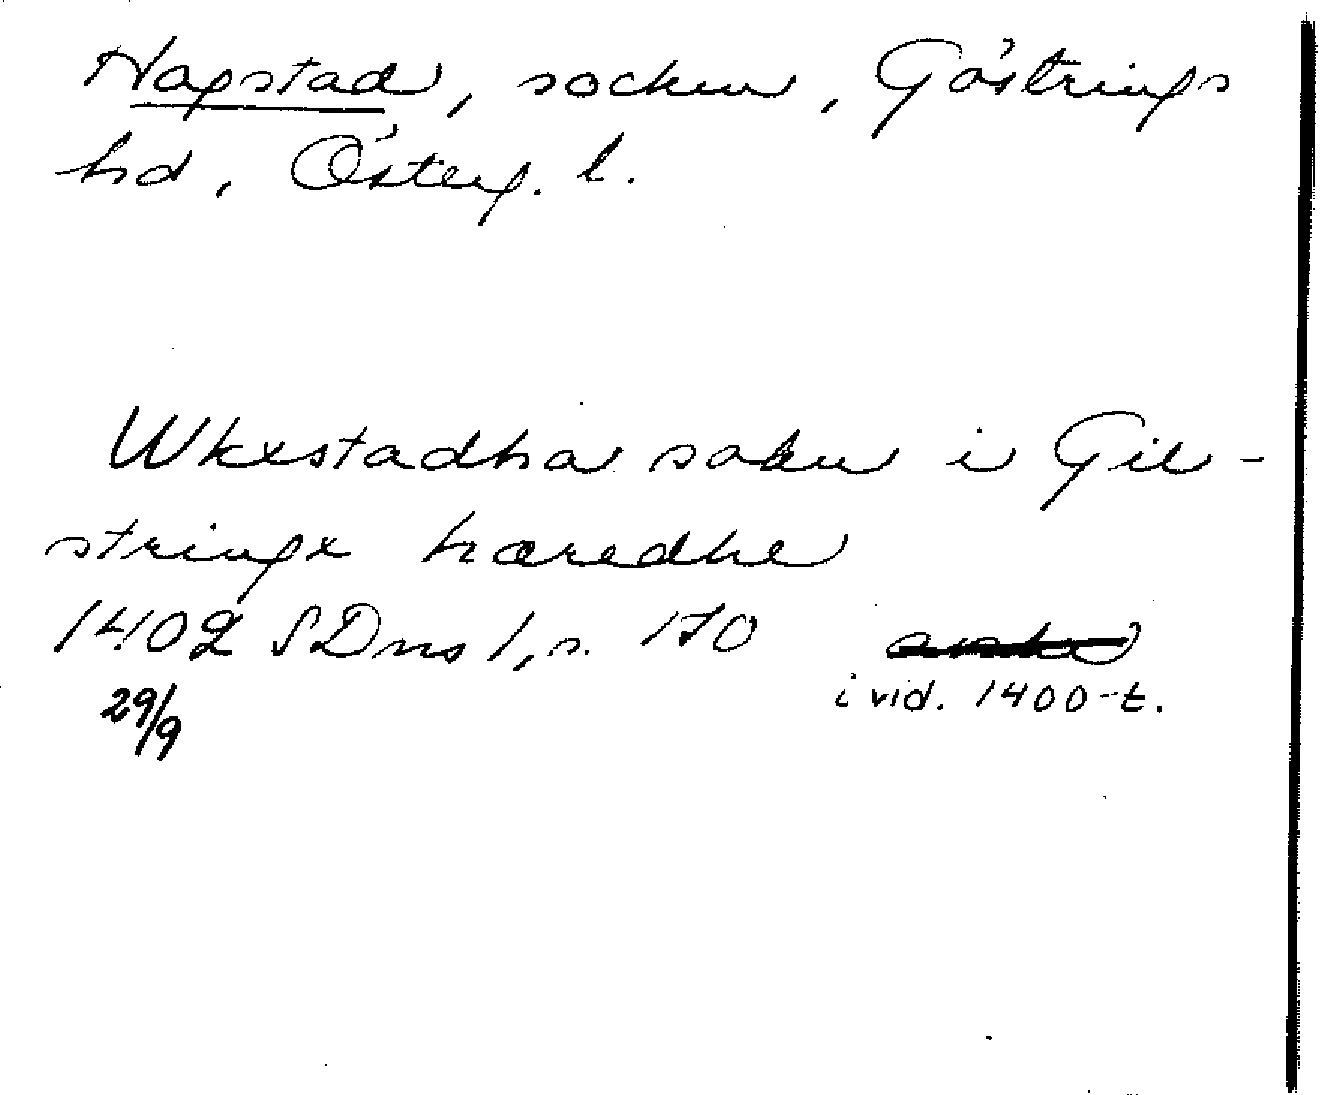 Hogstad, socken, Göstrings
hd, Österg. l.
Wkxstadha sokn i Gil-
stringx hæredhe
1402 SDns 1, s. 170
i vid. 1400-t.
29/9